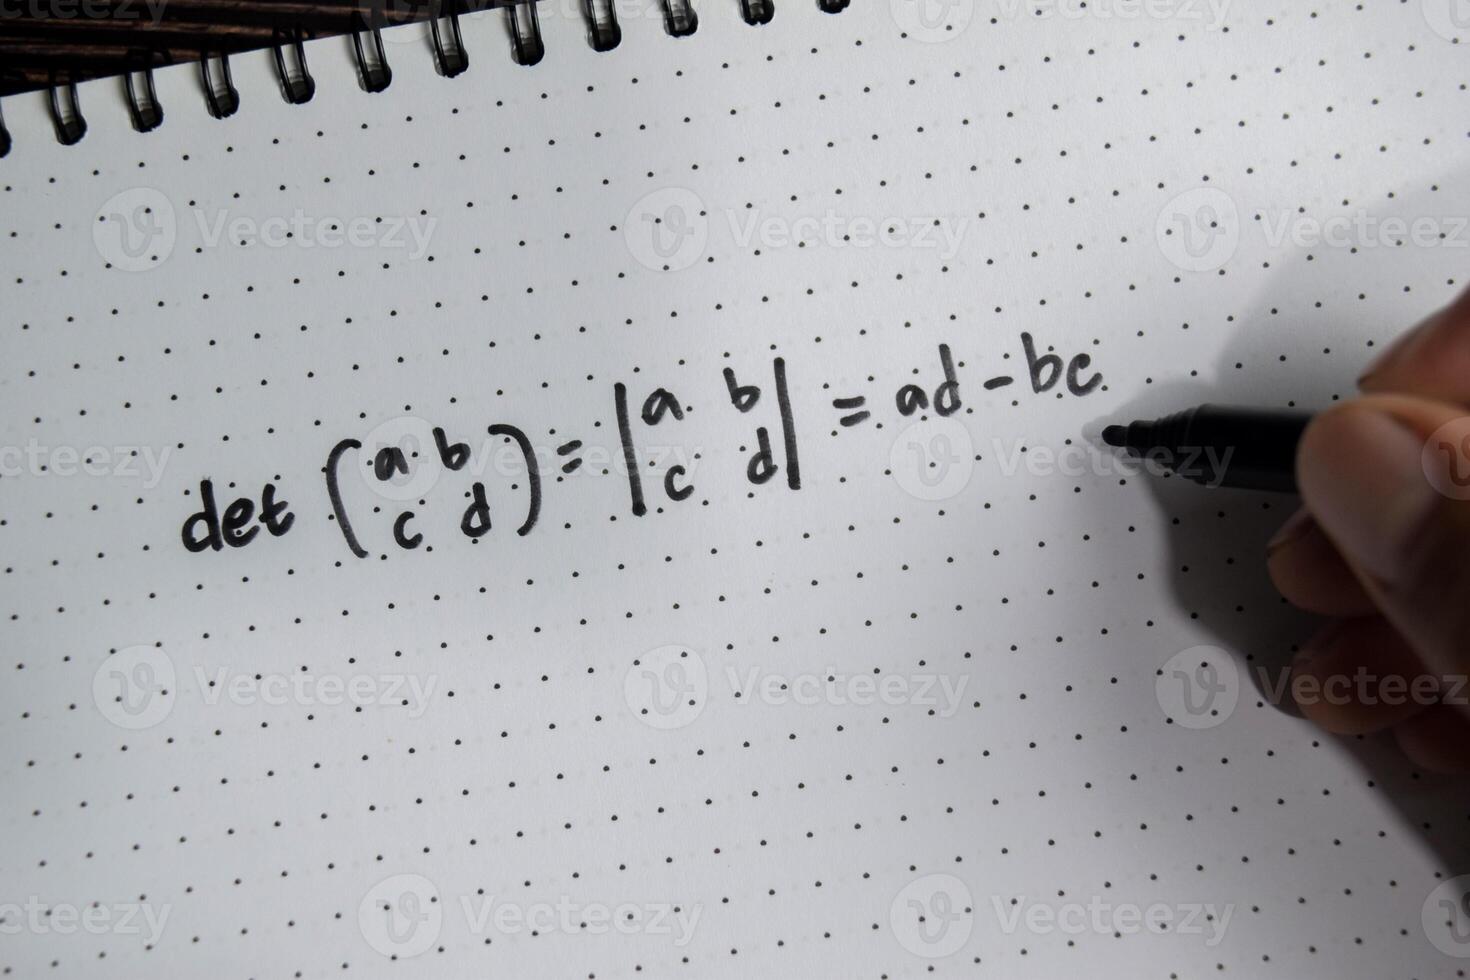 det (a b c d) = |a b c d| = ad - bc
Vecteezy Vecteezy Vecteezy
Vecteezy Vecteezy
Vecteezy Vecteezy Vecteezy
Vecteezy Vecteezy